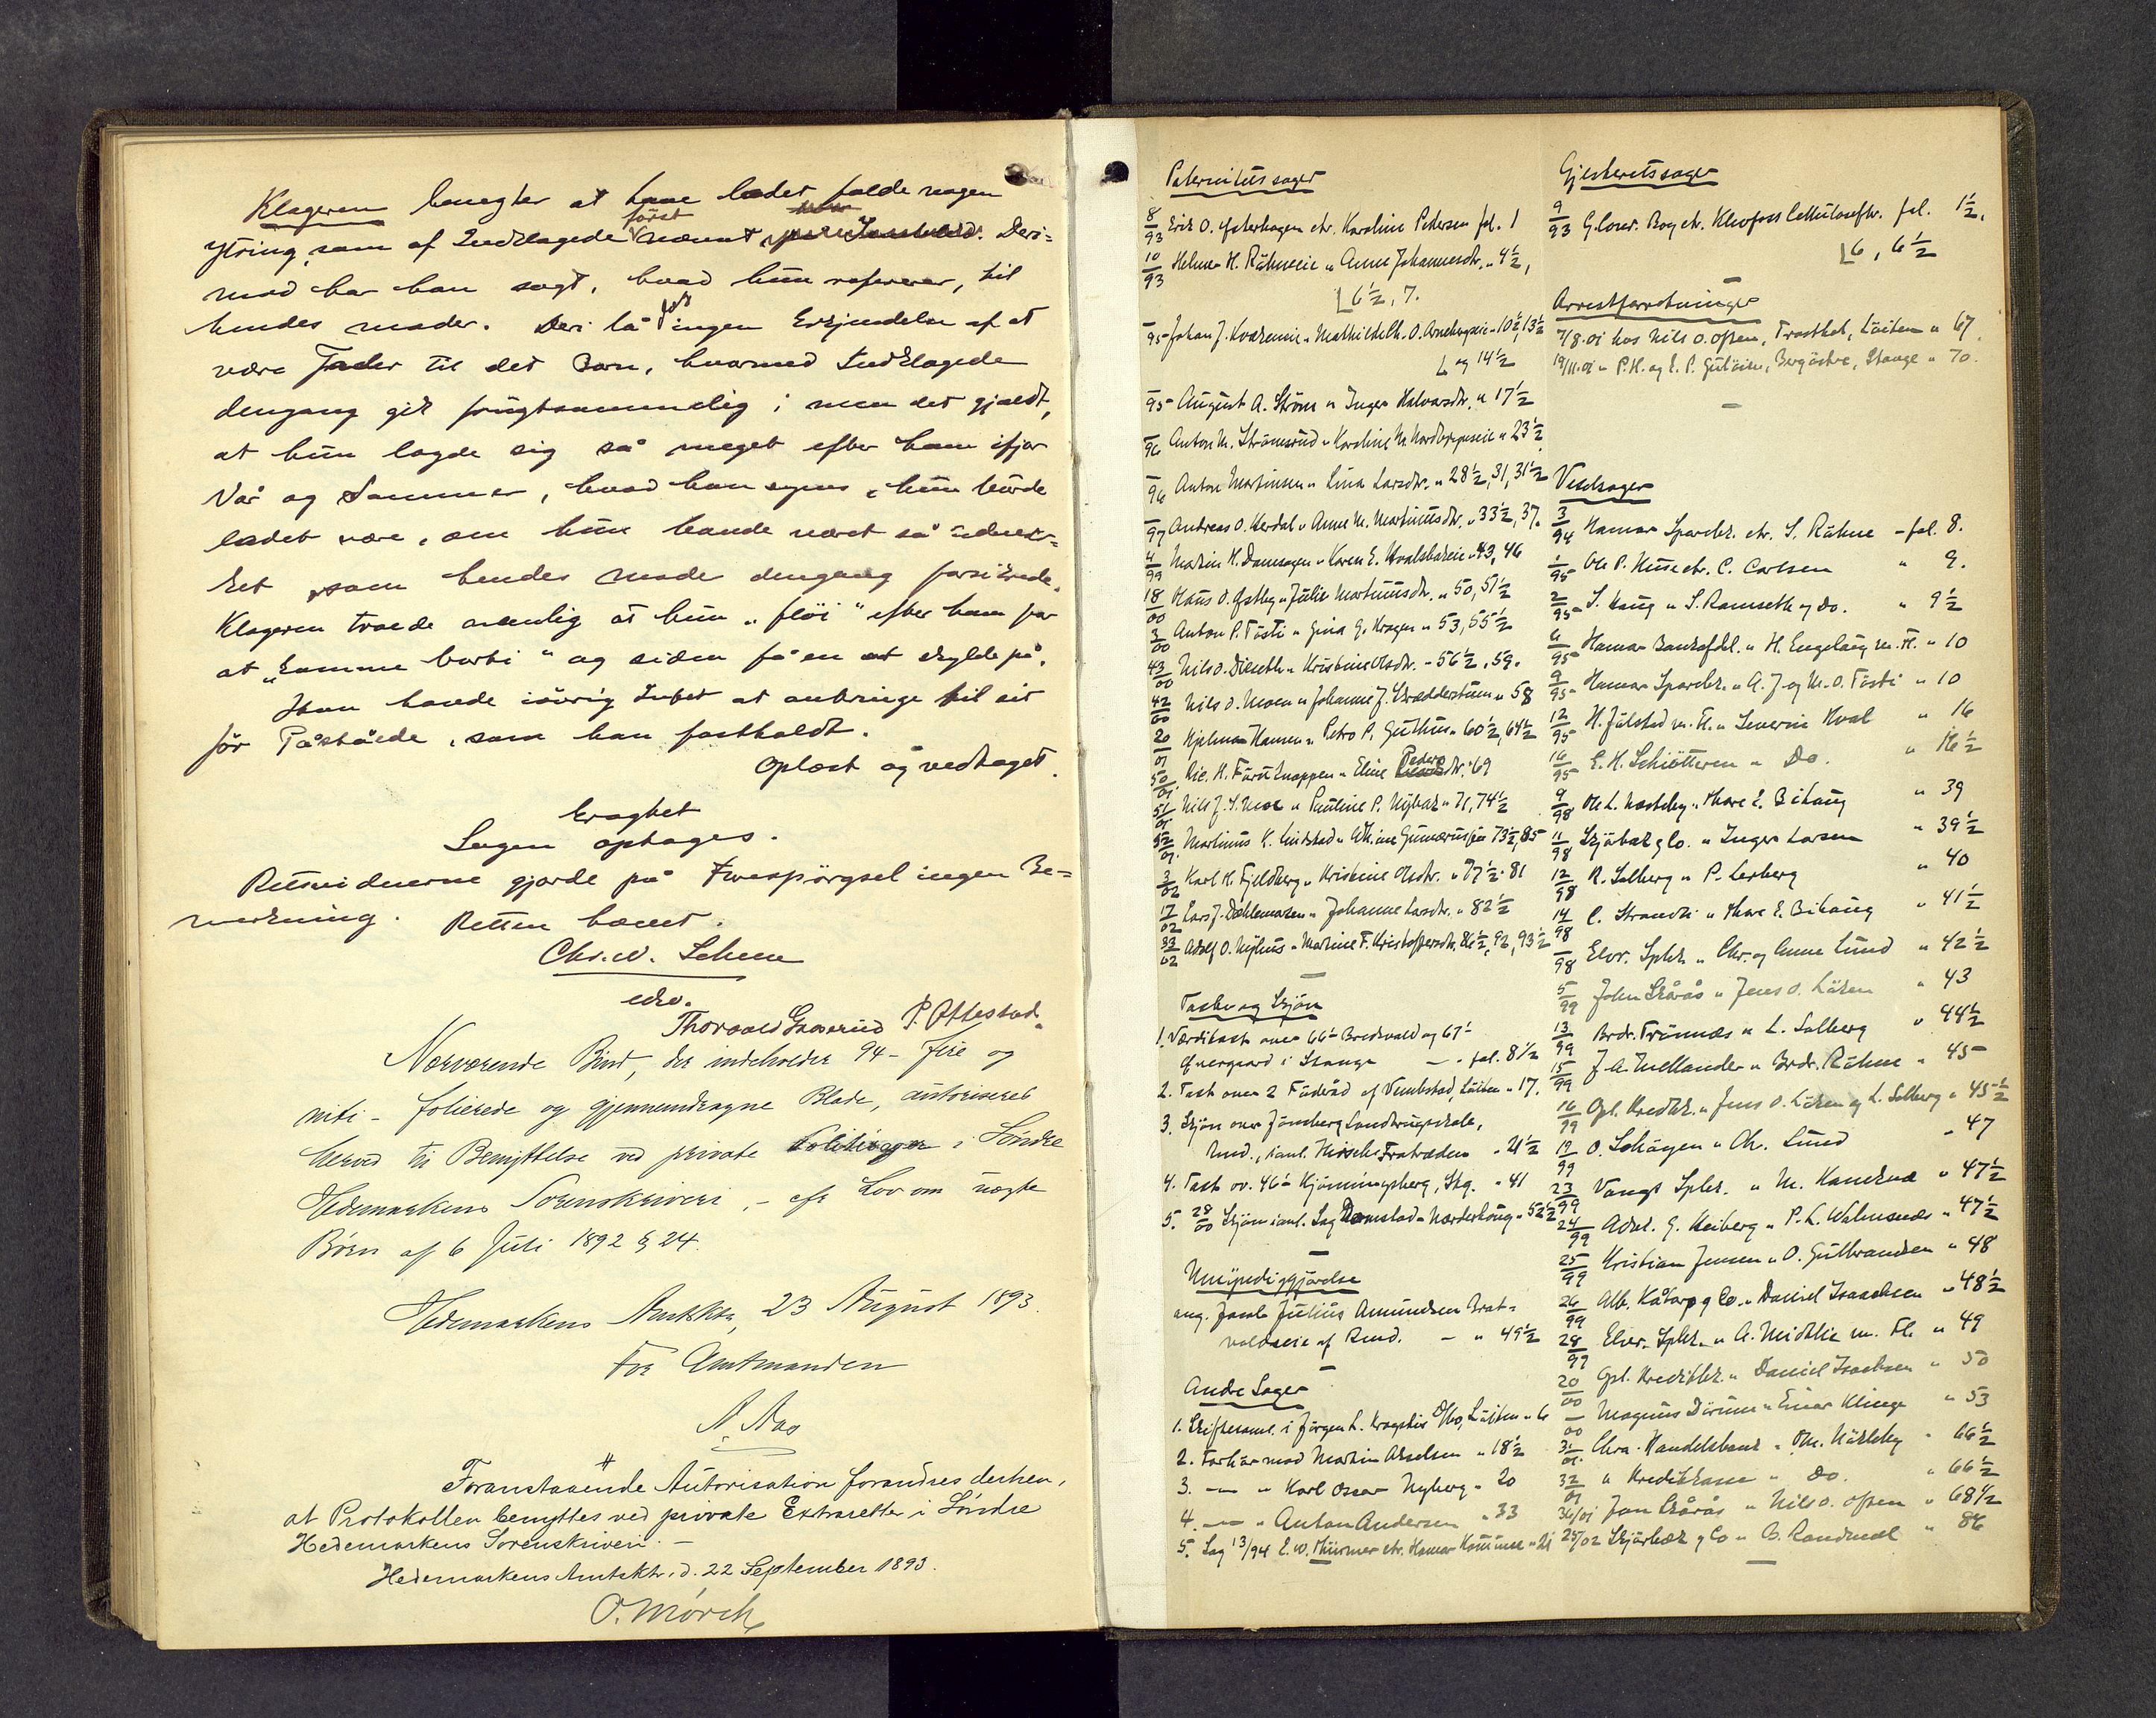 Klageren benegter at have ladet falde nogen
Ytring, som af Indklagede først nævnt. Deri-
mod har han sagt, hvad hun refererer, til
hendes moder. Deri lå jo ingen Erkjendelse af at
være Fader til det Barn, hvormed Indklagede
dengang gik frugtsommelig; men det gjaldt,
at hun lagde sig så meget efter ham ifjor
Vår og Sommer, hvad han synes, hun burde
ladet være, om hun havde været så
ket som hendes moder dengang forsikrede.
Klageren troede nemlig at hun "fløi" efter ham for
at "komme borti" og siden få en at skylde på.
Han havde iøvrig Intet at anbringe til sit
før Påståede, som han fastholdt.
Oplæst og vedtaget.
Eragtet
Sagen optages.
Retsvidnerne gjorde på Forespørgsel ingen Be-
merkning. Retten hævet.
Chr. W.
cdw.
Thorvald P. Ottestad
Nærværende Bind, der indeholder 94 - fire og
niti - folierede og gjennemdragne Blade, autoriseres
herved til Benyttelse ved private Politisager i Søndre
Hedemarkens Sorenskriveri, - efr Lov om uægte
Børn af 6 Juli 1892 § 24.
Hedemarkens Amtsktr, 23 August 1893.
For Amtmanden
N. Aas
Foranstaaende Autorisation forandres derhen,
at Protokollen benyttes ved private Extraretter i Søndre
Hedemarkens Sorenskriveri. -
Hedemarkens Amtsktr. d. 22 September 1893.
O. Mørch
Paternitetssager
8/93 Erik O. Østerhagen ctr. Karoline Pedersen fol. 1
10/93 Helmer H. " Anne Johannesdtr. " 4½,
6½, 7.
95 Johan J. " Mathilde Ch. O. " 10½, 13½
og 14½
95 August A. Strøm " Inger Halvorsdtr. " 17½
96 Anton M. Strømsrud " Karoline M. " 23½
96 Anton Martinsen " Lina Larsdtr. " 28½, 31, 31½
97 Andreas O. " Anne M. Martinusdtr. " 33½, 37.
4/99 Martin H. " Karen E. " 43, 46
18/00 Hans O. Østby " Julie Martinusdtr. " 50, 51½
3/00 Anton P. Tosti " Gina G. " 53, 55½
43/00 Nils O. " Kristine Olsdtr. " 56½, 59.
42/00 Nils O. Moen " Johanne J. Skrædderstuen " 58
20/01 Hjelmar Hansen " Petra P. Guthus " 60½, 64½
50/01 H. Furuknappen " Eline Pedersdtr. " 69
51/01 Nils J. S. Moe " Pauline P. " 71, 74½
52/01 Martinus K. " 73½, 85
3/02 Karl K. Fjeldberg " Kristine Olsdtr. " 77½ - 81
17/02 Lars J. " Johanne Larsdtr. " 82½
33/02 Adolf O. Nyhus " Martine F. Kristoffersdtr. 86½, 92, 93½
Takst og Skjøn
1. Værditakst over 66 Bredvold og 67
i Stange - - fol. 8½
2. Takst over 2 Føderåd af Vembstad, Løiten " 17.
3. Skjøn over Jønsberg Landbrugsskole,
Rmd., - 21½
4. Takst ov. 46 Kjønningsberg, Stg. " 41
5. 28/00 Skjøn ianl. Sag - Nordenhaug " 52½
Umyndiggjørelse
ang. Jacob Julius Amundsen Brat-
af Rmd. - " 49½
Andre Sager
1. Skiftesaml. i Jørgen L. Dbo, Løiten " 6
2. Forhør mod Martin Axelsen " 18½
3. — " Karl Oscar Nyberg " 20
4. — " Anton Andersen " 33
5. Sag 13/94 ctr. Hamar Kommune " 21
Gjesteretssager
9/93 ctr. Klevfoss Cellulosefbr. fol. 1½,
6, 6½
Arrestforretninger
7/8.01 hos Nils O. Opsen, Løiten " 67.
19/11.01 " P. H. og E. P. Gulåsen, Bergåshve, Stange " 70.
Vexelsager
3/94 Hamar Sparebk. ctr. S. Ruhne - fol. 8.
1/95 Ole P. ctr. C. Carlsen " 9.
2/95 S. Haug " S. Ramseth og Do. " 9½
4/95 Hamar Bankafdel. " H. Engelaug m. Fl. " 10
9/95 Hamar Sparebk. " A. J. og M. O. Tosti " 10
12/95 H. Julstad m. Fl. " Severin Hval " 16
16/95 E. H. Schiøtteren " Do. " 16½
9/98 Ole L. " Thore E. Bihaug " 39
11/98 Skjøbæk & Co. " Inger Larsen " 39½
12/98 R. Solberg " P. Lerberg " 40
14/98 C. " Thore E. Bihaug " 41½
98 Elvr. Spbk. " Chr. og Anne Lund " 42½
5/99 John Skårås " Jens O. Løken " 43
13/99 Brdr. Frisnæs " L. Solberg " 44½
15/99 J. A. Mellander " Brdr. Ruhne " 45
16/99 Opl. Kreditbk. " Jens O. Løken og L. Solberg " 45½
19/99 O. " Ch. Lund " 47
23/99 Vangs Spbk. " M. " 47½
24/99 G. Heiberg " P. L. Walmsnæs " 47½
25/99 Kristian Jensen " O. Gulbrandsen " 48
26/99 Alb. Kåtorp & Co. " Daniel Isaachsen " 48½
28/99 Elver. Spbk. " A. Midtlie m. Fl. " 49
20/00 Opl. Kreditbk. " Daniel Isachsen " 50
00 Magnus Dørum " Einar Klinge " 53
31/01 Chra. Handelsbank " Ole. " 66½
32/01 " Kreditkasse " Do. " 66½
36/01 Jon Skårås " Nils O. Opsen " 68½
25/02 Skjørbæk & Co " O. " 86